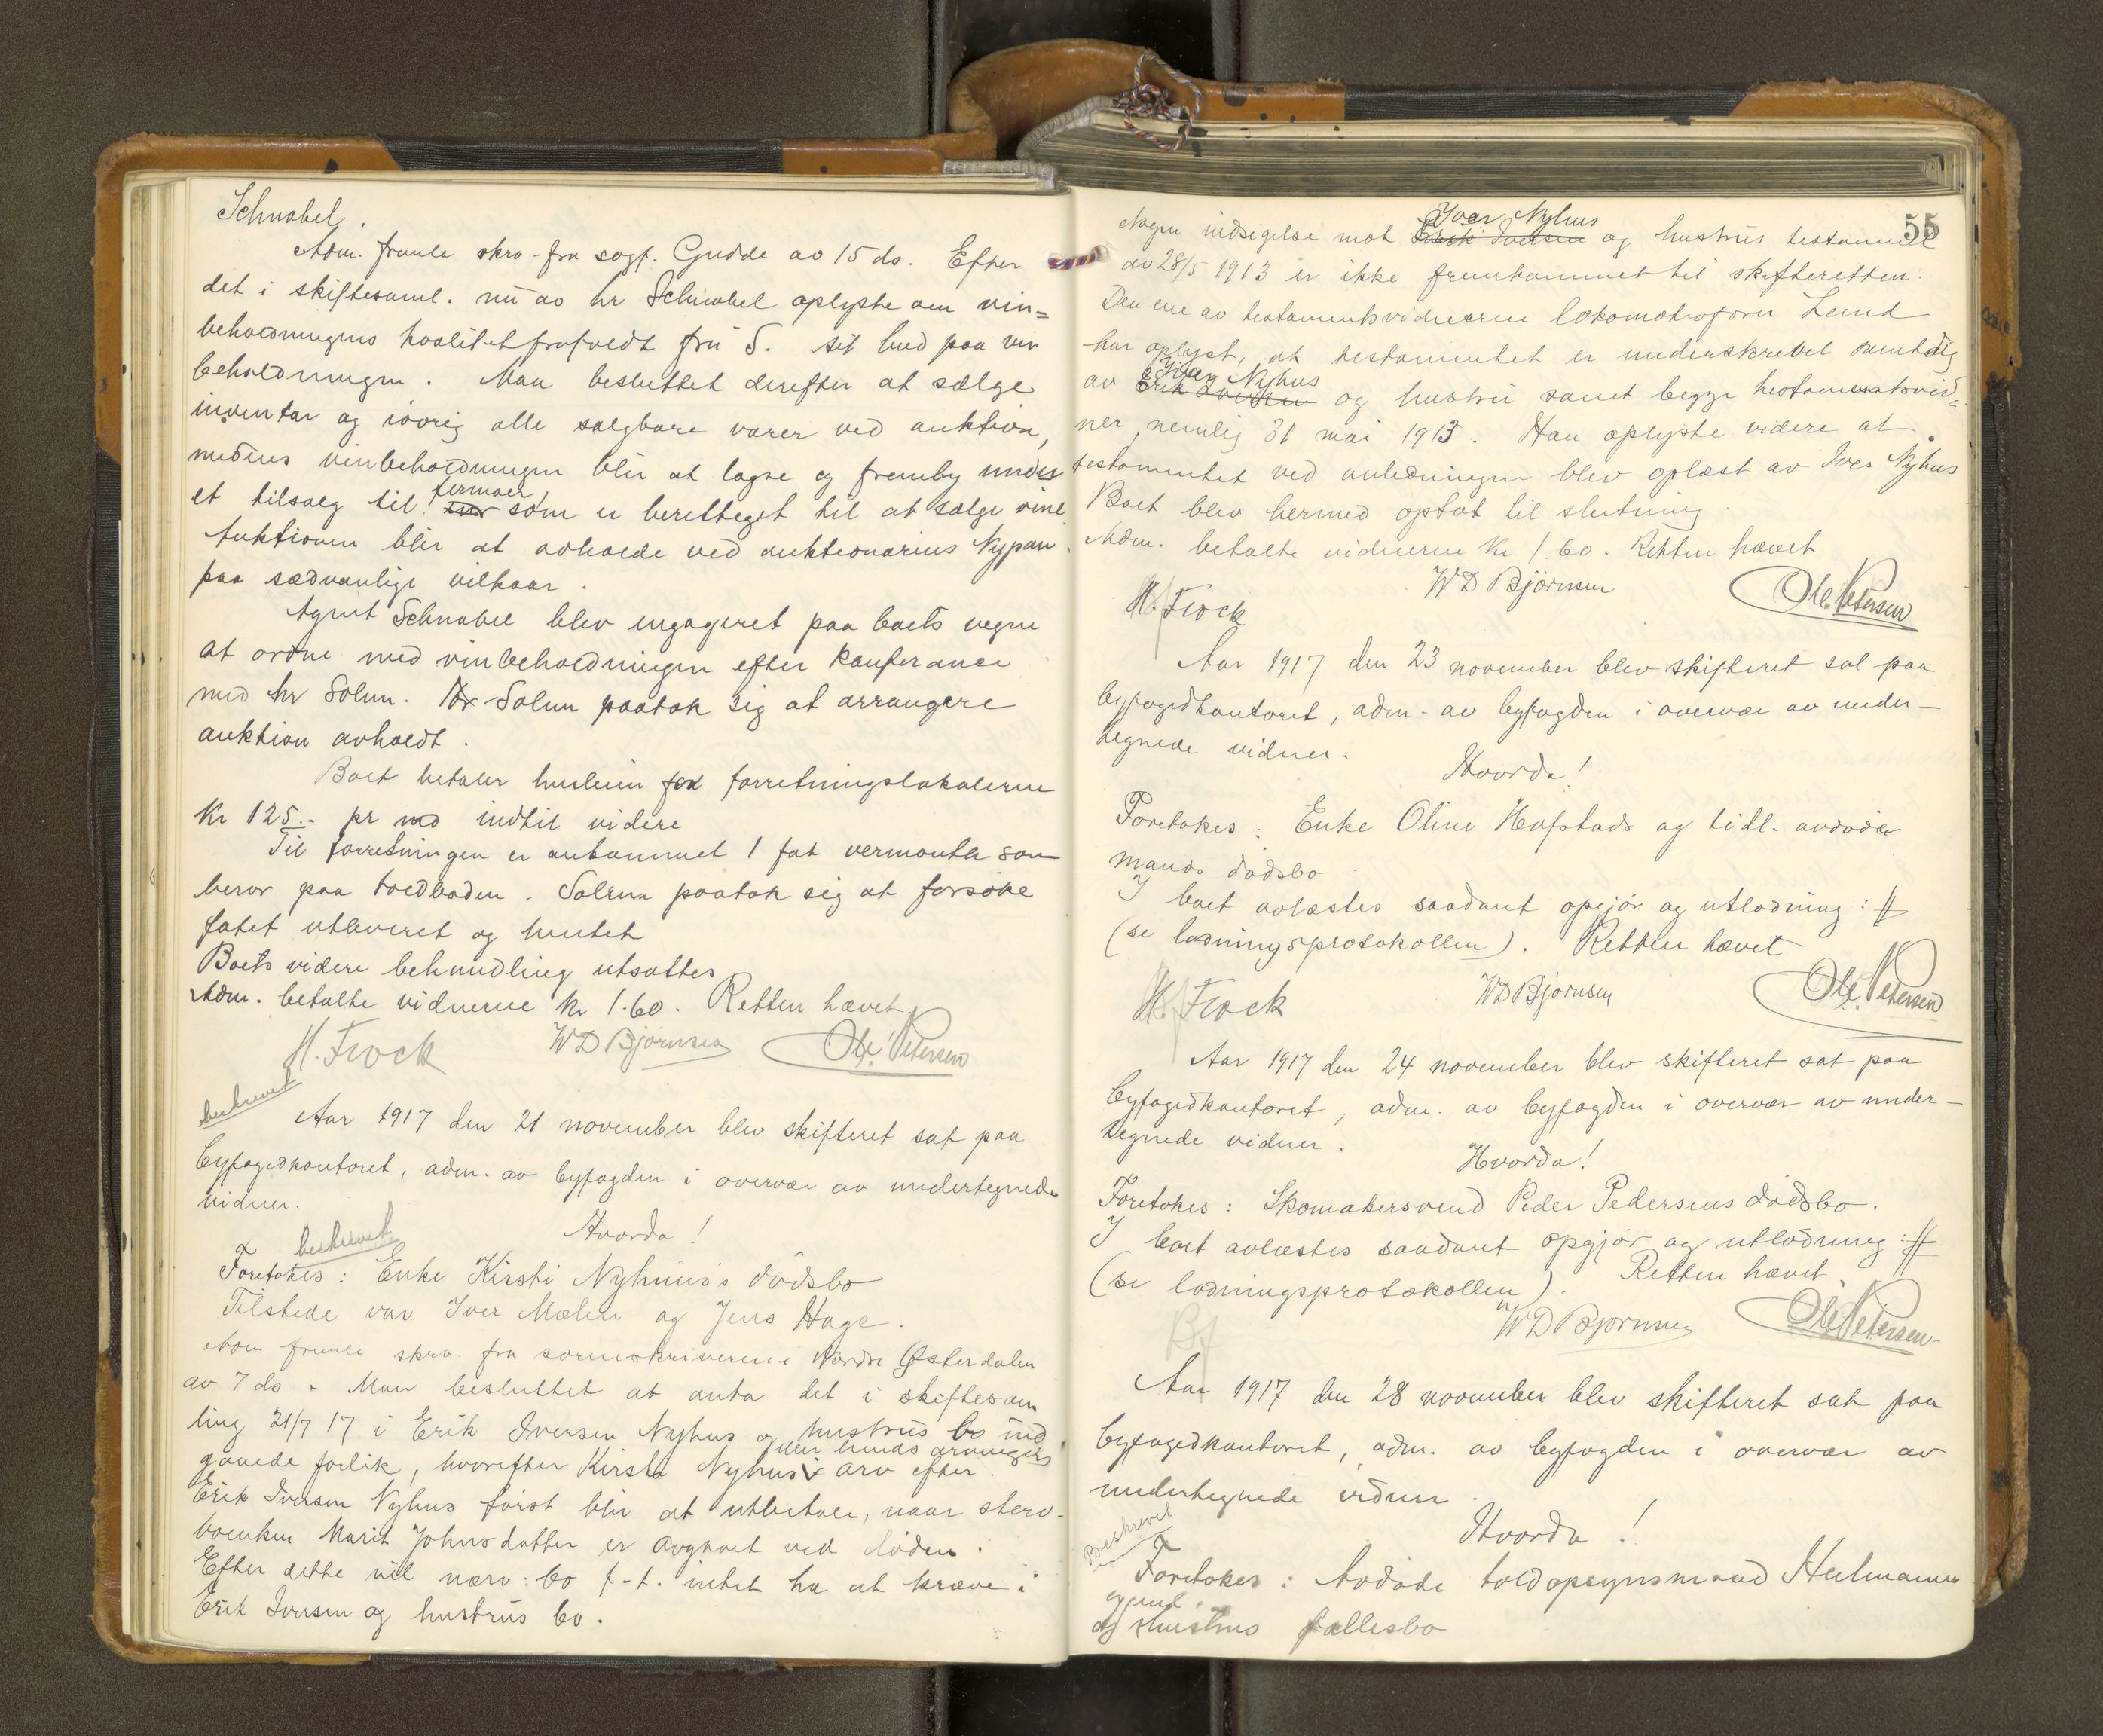 Schnabel.
Adm. fremla skrv. fra sagf. Gudde av 15 ds. Efter
det i skiftesaml. nu av hr Schnabel oplyste om vin=
beholdningens kvalitet frafaldt fru S. sit bud paa vin
beholdningen. Man besluttet derefter at sælge
inventar og iøvrig alle salgbare varer ved auktion,
medens vinbeholdningen blir at lagre og fremby under
et tilsalg til firmaer, som er berettiget til at sælge vine
Auktionen blir at avholde ved auktionarius Nypan
paa sædvanlige vilkaar.
Agent Schnabel blev engageret paa boets vegne
at ordne med vinbeholdningen efter konferance
med hr Solem. Hr Solem paatok sig at arrangere
auktion avholdt.
Boet betaler husleien for forretningslokalerne
Kr 125.- pr md indtil videre
Til forretningen er ankommet 1 fat vermouth som
beror paa toldboden. Solem paatok sig at forsøke
fatet utleveret og hentet
Boets videre behandling utsattes
Adm. betalte vidnerne kr 1.60. Retten hævet.
H. Frock WD Bjørnsen Ole Petersen
beskrevet
Aar 1917 den 21 november blev skifteret sat paa
byfogedkontoret, adm. av byfogden i overvær av undertegnede
vidner.
Hvorda!
beskrevet
Foretokes: Enke Kirsti Nyhuus's dødsbo
Tilstede var Iver Mælen og Jens Hage.
Adm fremla skrv. fra sorenskriveren i Nordre Østerdalen
av 7 ds. Man besluttet at anta det i skiftesam
ling 21/7 17 i Erik Iversen Nyhus og hustrus bo ind
gaaede forlik, hvorefter Kirsti Nyhus's eller hends arvingers arv efter
Erik Iversen Nyhus først blir at utbetale, naar sterv-
boenken Marit Johnsdatter er avgaaet ved døden.
Efter dette vil nærv: bo f-t. intet ha at kræve i
Erik Iversen og hustrus bo.
55
Nogen indsigelse mot Erik Iversen Iver Nyhus og hustrus testament
av 28/5 1913 er ikke fremkommet til skifteretten.
Den ene av testamentsvidnerne lokomotivfører Lund
har oplyst, at testamentet er underskrevet samtidig
av Erik Iversen Iver Nyhus og hustru samt begge testamentsvid=
ner, nemlig 31 mai 1913. Han oplyste videre at
testamentet ved anledningen blev oplæst av Iver Nyhus
Boet blev hermed optat til slutning
Adm. betalte vidnerne kr 1.60. Retten hævet
H. Frock WD Bjørnsen Ole Petersen
Aar 1917 den 23 november blev skifteret sat paa
byfogedkontoret, adm. av byfogden i overvær av under-
tegnede vidner.
Hvorda!
Foretokes: Enke Oline Hafstads og tidl. avdøde
mands dødsbo
I boet avlæstes saadant opgjør og utlodning: #
(se lodningsprotokollen). Retten hævet
H. Frock WD Bjørnsen Ole Petersen
Aar 1917 den 24 november blev skifteret sat paa
byfogedkontoret, adm. av byfogden i overvær av under-
tegnede vidner.
Hvorda!
Foretokes: Skomakersvend Peder Pedersens dødsbo.
I boet avlæstes saadant opgjør og utlodning: #
(se lodningsprotokollen). Retten hævet.
Bf WD Bjørnsen Ole Petersen
Aar 1917 den 28 november blev skifteret sat paa
byfogedkontoret, adm. av byfogden i overvær av
undertegnede vidner.
Hvorda!
Beskrevet
Foretokes: Avdøde toldopsynsmand
og hustrus fællesbo